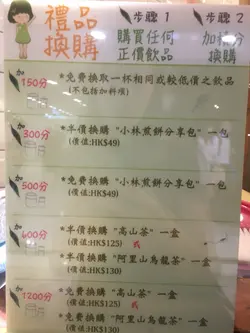 禮品
換購
步驟 1
購買任何
正價飲品
步驟 2
加積分
換購
150分
*免費換取一杯相同或較低價之飲品
(不包括加料項)
300分
*半價換購 "小林煎餅分享包" 一包
(價值:HK$49)
500分
*免費換購 "小林煎餅分享包" 一包
(價值:HK$49)
600分
*半價換購 "高山茶" 一盒
(價值:HK$125) 或
*半價換購 "阿里山烏龍茶" 一盒
(價值:HK$130)
1200分
*免費換購 "高山茶" 一盒
(價值:HK$125) 或
*免費換購 "阿里山烏龍茶" 一盒
(價值:HK$130)